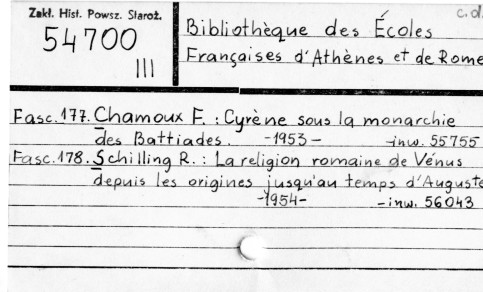 Zakł. Hist. Powsz. Staroż.
54700
III
c.d.
Bibliothèque des Écoles
Françaises d'Athènes et de Rome
Fasc.177. Chamoux F. : Cyrène sous la monarchie
des Battiades. -1953- -inw. 55755
Fasc.178. Schilling R. : La religion romaine de Vénus
depuis les origines jusqu'au temps d'Auguste
-1954- -inw. 56043